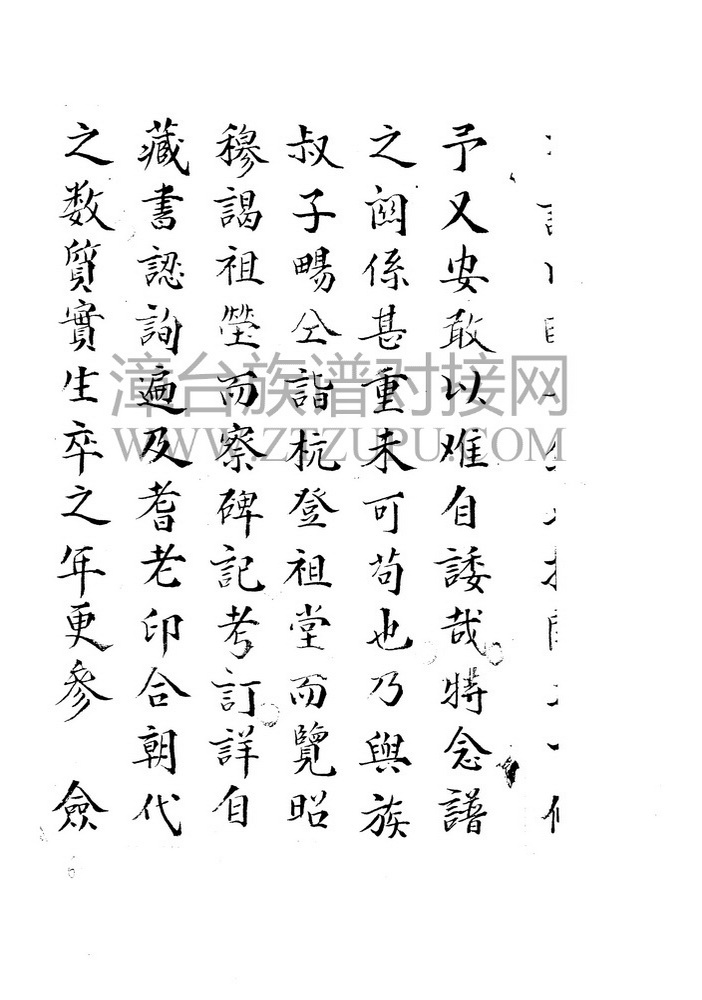 予又安敢以难自諉哉特念譜
之関係甚重未可苟也乃與族
叔子暢仝詣杭登祖堂而覽昭
穆謁祖塋而察碑記考訂詳自
藏書認詢遍及耆老印合朝代
之数質實生卒之年更參 僉
漳台族谱对接网
WWW.ZTZUPU.COM